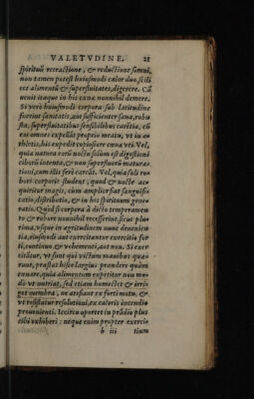 VALETVDINE. 21
spirituũ retractione, & reductione somni,
non tamen potest huiusmodi calor duo scili
cet alimentũ & superfluitates, digerere. Cõ
uenit itaque in his cœna nonnihil demere.
Si verò huiusmodi corpora sub latitudine
fuerint sanitatis, aut sufficienter sana, robu
sta, superfluitatibus sensibilibus carẽtia, cũ
eti omne expellãt proprio meatu, vt in
athletis, his expedit copiosiore cœna vti. Vel,
quia natura verũ noctu solùm est digestioni
ciborũ intenta, & non superfluitũ matura-
tioni, cum illis ferè careãt. Vel, quia soli ro
bori corporis studẽt; quod & nocte ac-
quiritur magis, cum amplior fiat sanguifi-
catio, distributio, & in his spirituum gene-
ratio. Quòd si corpora à dicto temperamen
to & robore nonnihil recesserint, sicut plu-
rima, vsque in ægritudinem nunc deuenien
tia, eiusmodi aut exercitantur exercitio for
ti, continuo, & vehementi, aut non. Si exer-
citẽtur, vt sunt qui victum manibus quæ-
runt, præstat hosce largius prandere quàm
cœnare, quia alimentum expetitur non mo
dò vt nutriat, sed etiam humectet & irri-
get membra, ne arefiant ex forti motu, &
vt resistatur resolutioni, ex caloris incendio
prouenienti. Itecirco oportet in prãdio plus
cibi exhiberi: neque enim propter exerci-
b iii tium